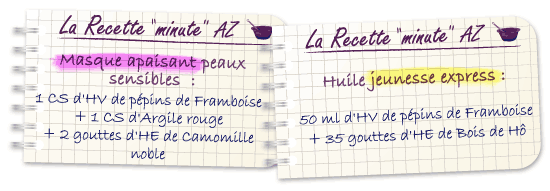 La Recette "minute" AZ
Masque apaisant peaux
sensibles :
1 CS d'HV de pépins de Framboise
+ 1 CS d'Argile rouge
+ 2 gouttes d'HE de Camomille
noble
La Recette "minute" AZ
Huile jeunesse express :
50 ml d'HV de pépins de Framboise
+ 35 gouttes d'HE de Bois de Hô